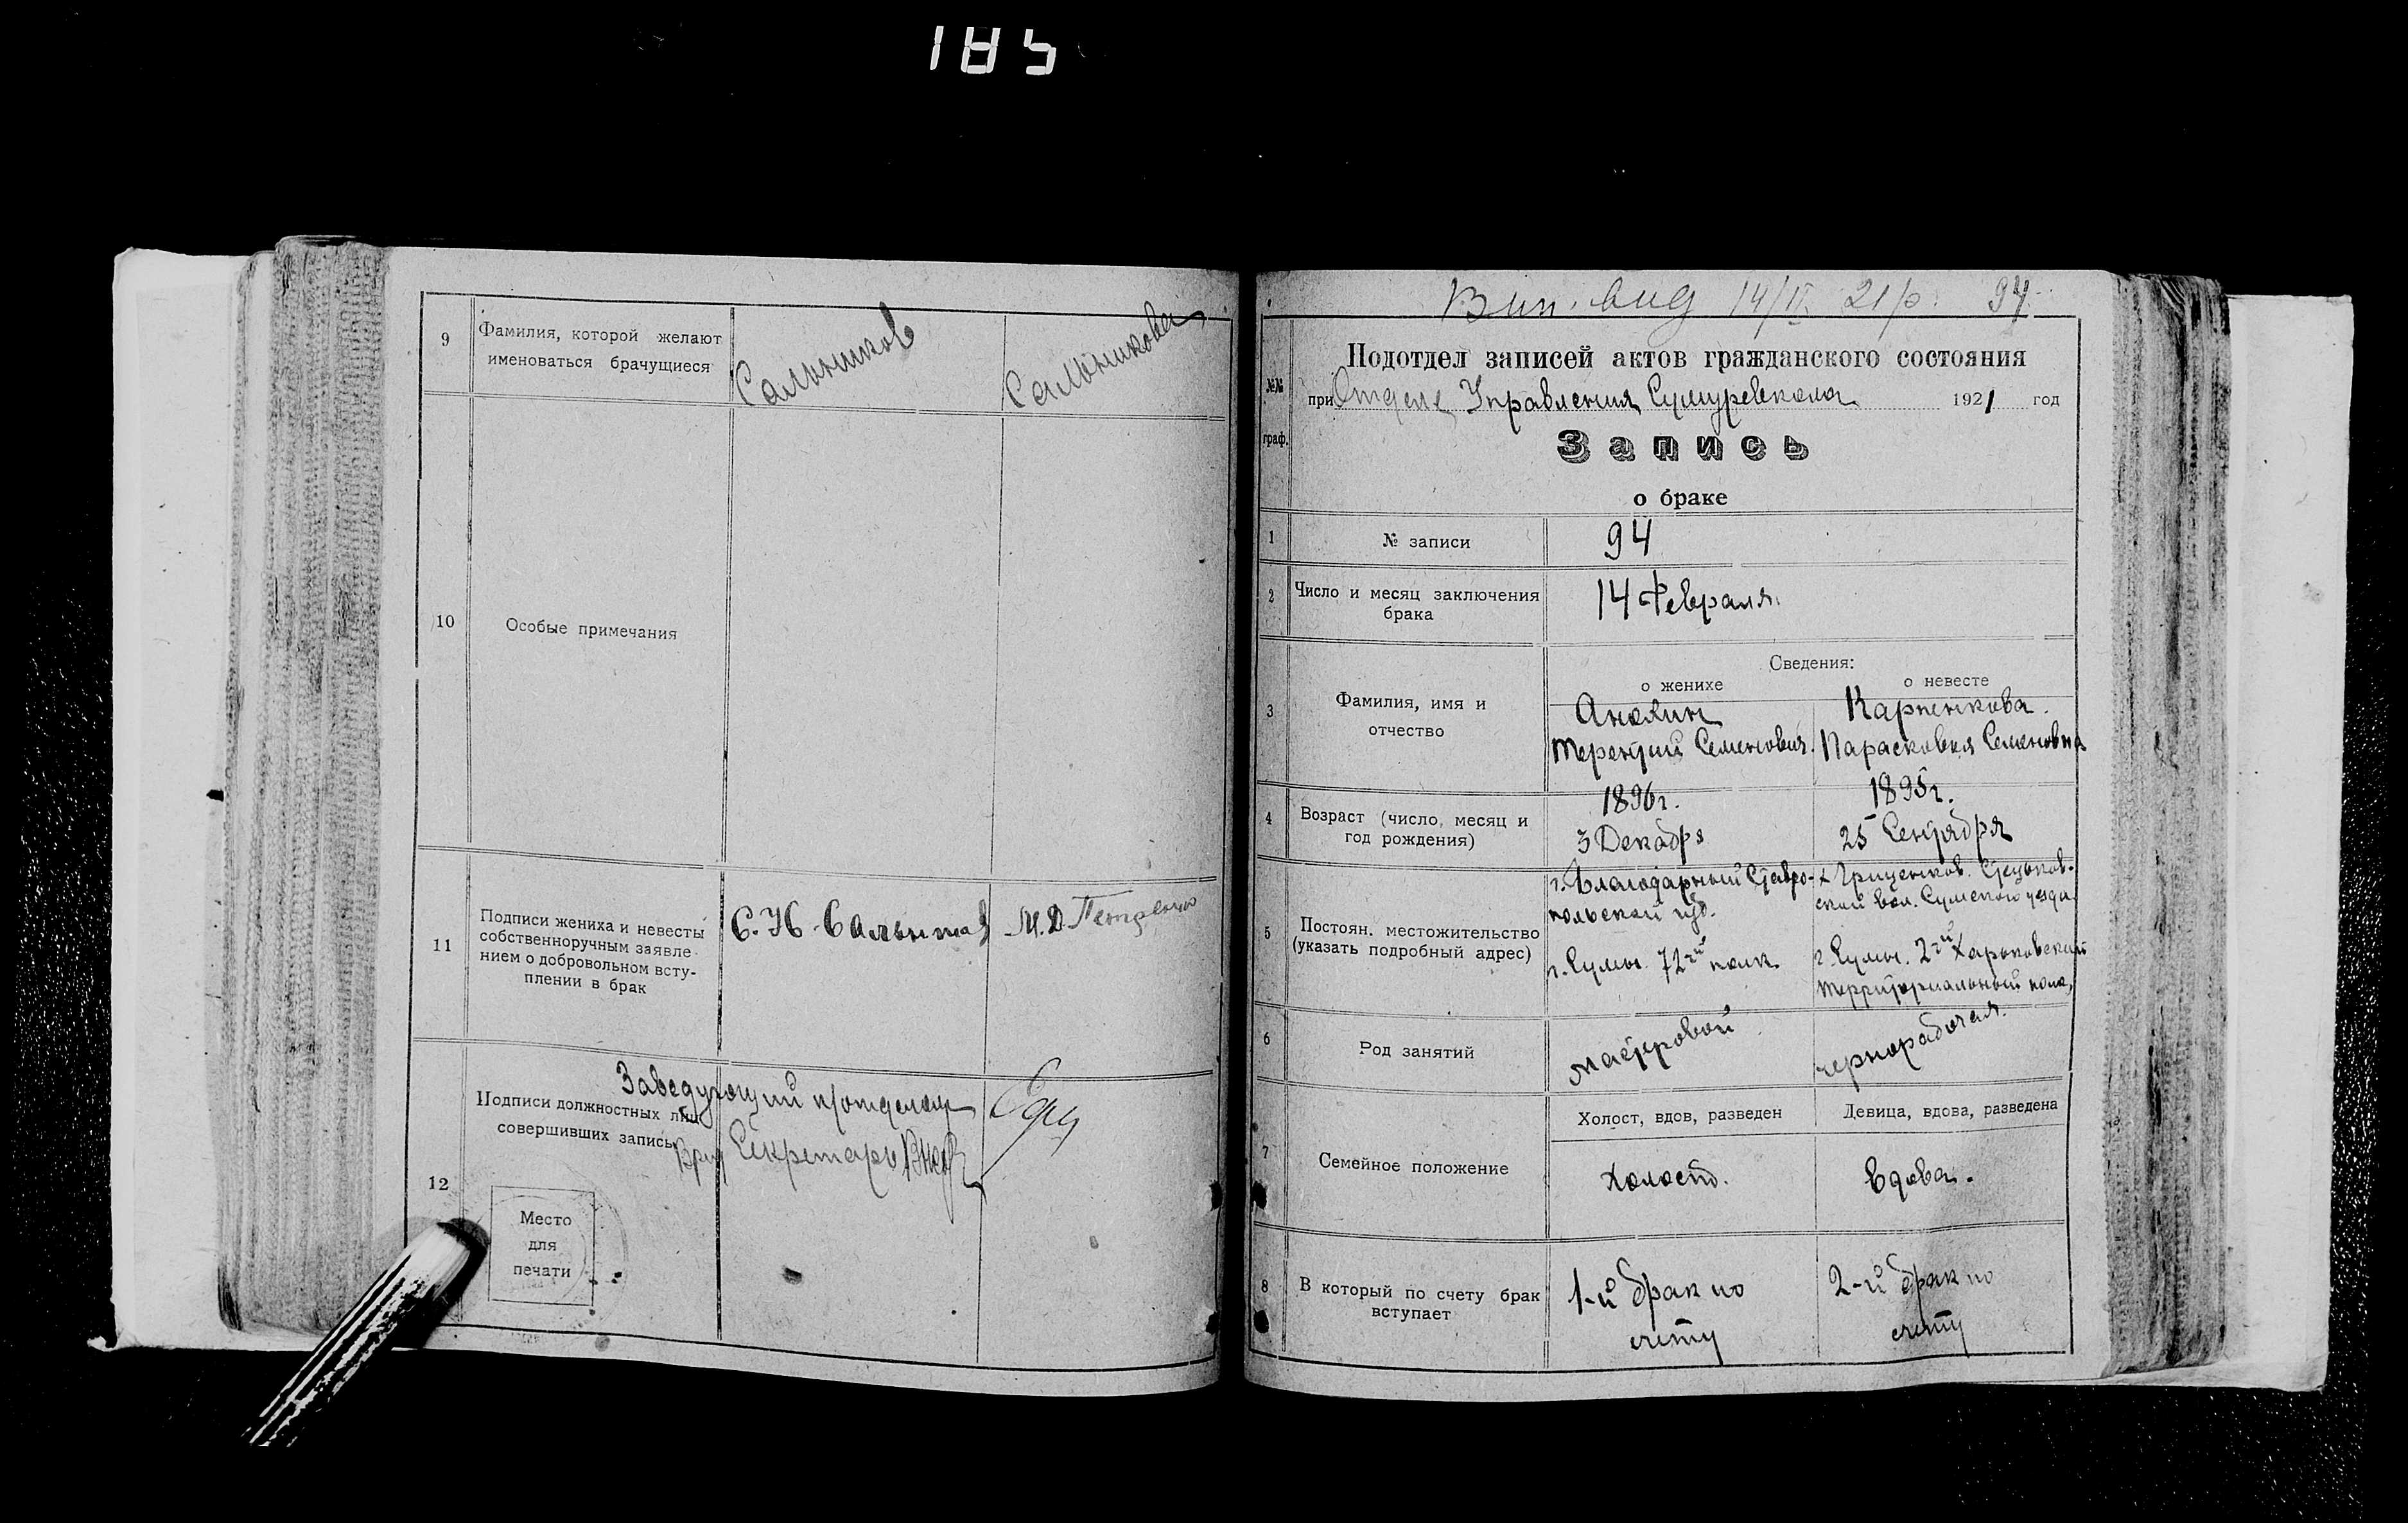 185
9
Фамилия, которой желают
именоваться брачущиеся
Сальников
Сальникова
10
Особые примечания
11
Подписи жениха и невесты
собственноручным заявле-
нием о добровольном всту-
плении в брак
С. Н. Сальников
М. Д. Петренко
12
Подписи должностных лиц
совершивших запись
Заведующий
Секретарь
Место
для
печати
14/II 21 р. 94
№№
граф.
Подотдел записей актов гражданского состояния
при Отделе Управления Сумуревкома 1921 год
Запись
о браке
1
№ записи
94
2
Число и месяц заключения
брака
14 Февраля
Сведения:
о женихе
о невесте
3
Фамилия, имя и
отчество
Анохин
Терентий Семенович.
Карпенкова.
Парасковия Семеновна
4
Возраст (число, месяц и
год рождения)
1896 г.
3 Декабря
1895 г.
25 Сентября
5
Постоян. местожительство
(указать подробный адрес)
г. Благодарный Ставро-
польской губ.
г. Сумы. 72-й полк
х. Гриценков. Стецьков-
ской вол. Сумского уезда.
г. Сумы. 2-й Харьковский
территориальный полк,
6
Род занятий
мастеровой
чернорабочая.
7
Семейное положение
Холост, вдов, разведен
Девица, вдова, разведена
холост.
вдова.
8
В который по счету брак
вступает
1-й брак по
счету
2-й брак по
счету